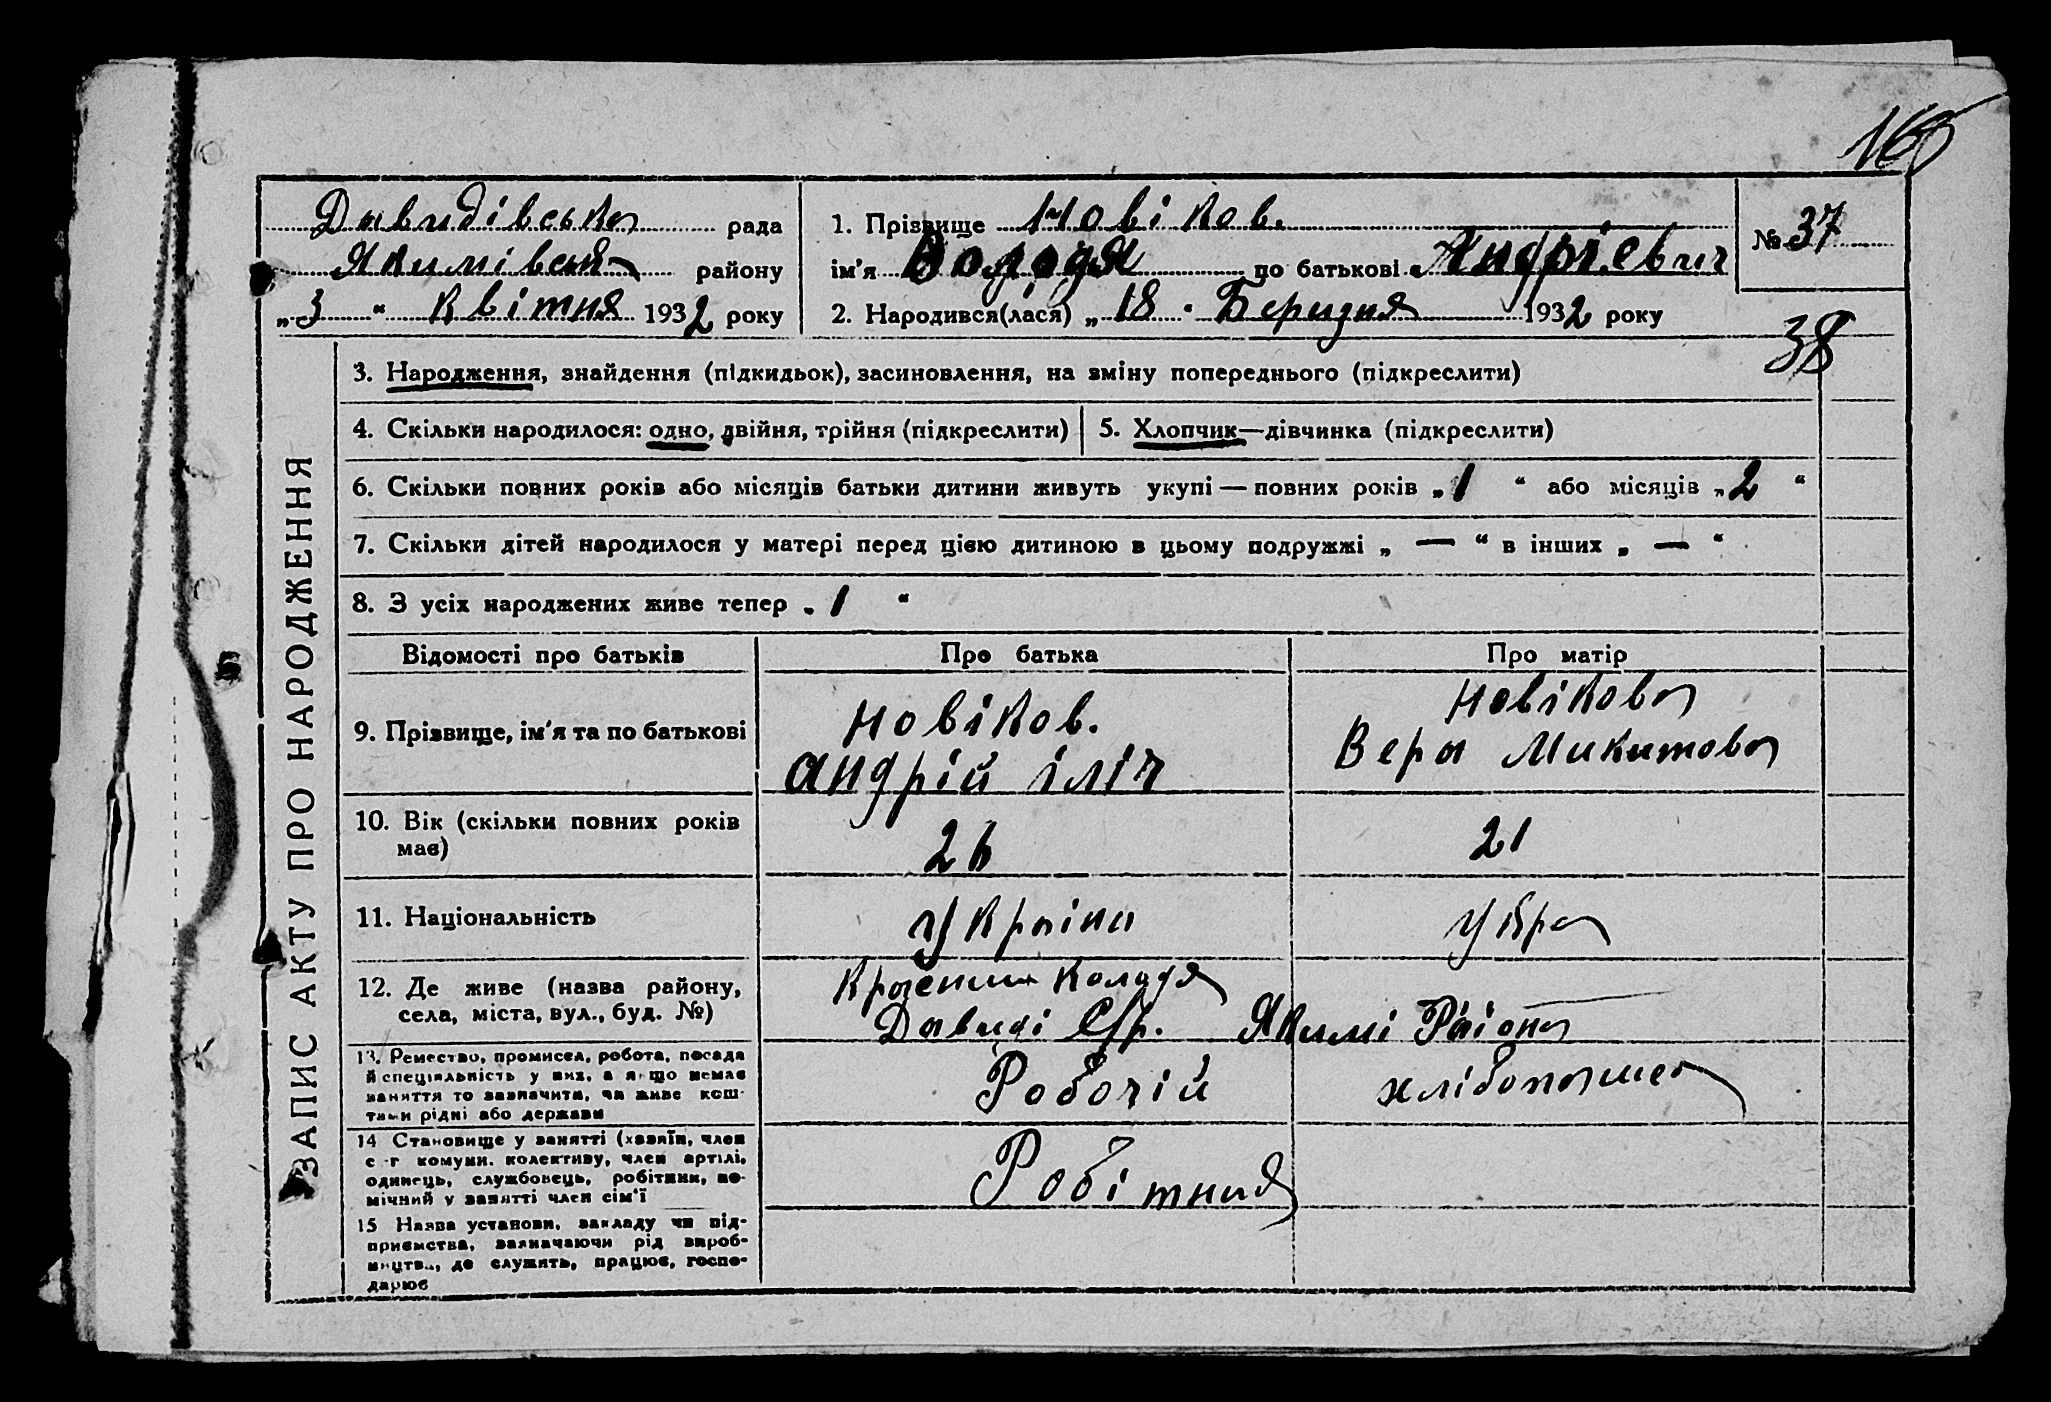 160
Давидівська рада
Якимівськ району
„ 3 “ Квітня 1932 року
1. Прізвище Новіков.
ім'я Володя по батькові Андрієвич
2. Народився(лася) „ 18 “ Березня 1932 року
№ 37
38
ЗАПИС АКТУ ПРО НАРОДЖЕННЯ
3. Народження, знайдення (підкидьок), засиновлення, на зміну попереднього (підкреслити)
4. Скільки народилося: одно, двійня, трійня (підкреслити)
5. Хлопчик—дівчинка (підкреслити)
6. Скільки повних років або місяців батьки дитини живуть укупі — повних років „ 1 “ або місяців „ 2 “
7. Скільки дітей народилося у матері перед цією дитиною в цьому подружжі „ — “ в інших „ — “
8. З усіх народжених живе тепер „ 1 “
Відомості про батьків Про батька Про матір
9. Прізвище, ім'я та по батькові
Новіков.
Андрій Іліч
Новікова
Вера Микитова
10. Вік (скільки повних років
має)
26
21
11. Національність
Україна
Укра
12. Де живе (назва району,
села, міста, вул., буд. №)
Давиді С/р. Якимі Раіона
13. Ремество, промисел, робота, посада
й спеціяльність у них, а якщо немає
заняття то зазначити, чи живе кош-
тами рідні або держави
Робочій
14 Становище у занятті (хазяїн, член
с.-г комуни. колективу, член артілі,
одинець, службовець, робітник, по-
мічний у занятті член сім'ї
15 Назва установи, закладу чи під-
приємства, зазначаючи рід вироб-
ництва, де служить, працює, госпо-
дарює